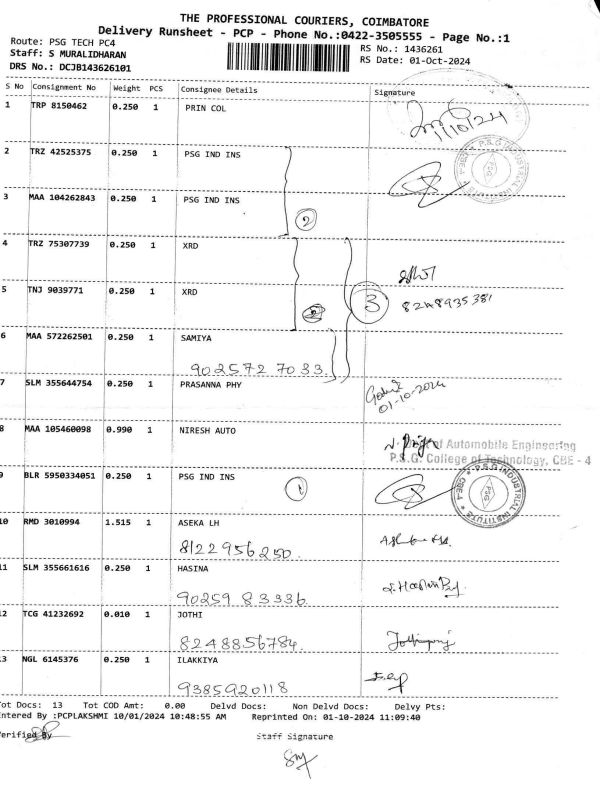 THE PROFESSIONAL COURIERS, COIMBATORE
Delivery Runsheet - PCP - Phone No.:0422-3505555 - Page No.:1
Route: PSG TECH PC4
RS No.: 1436261
Staff: S MURALIDHARAN
RS Date: 01-Oct-2024
DRS No.: DCJB143626101
S No Consignment No Weight PCS Consignee Details Signature
1 TRP 8150462 0.250 1 PRIN COL
1/10/24
2 TRZ 42525375 0.250 1 PSG IND INS
P.S.G. INDUSTRIAL
3 MAA 104262843 0.250 1 PSG IND INS
2
4 TRZ 75307739 0.250 1 XRD
5 TNJ 9039771 0.250 1 XRD
3
8248935381
6 MAA 572262501 0.250 1 SAMIYA
902572 7033
7 SLM 355644754 0.250 1 PRASANNA PHY
01-10-2024
8 MAA 105460098 0.990 1 NIRESH AUTO
of Automobile Engineering
P.S.G. College of Technology, CBE - 4
9 BLR 5950334051 0.250 1 PSG IND INS
1
P.S.G INDUSTRIAL INSTITUTE CBE-4
PSG
10 RMD 3010994 1.515 1 ASEKA LH
8122956250
11 SLM 355661616 0.250 1 HASINA
90259 83336
12 TCG 41232692 0.010 1 JOTHI
8248856784
13 NGL 6145376 0.250 1 ILAKKIYA
9385920118
Tot Docs: 13 Tot COD Amt: 0.00 Delvd Docs: Non Delvd Docs: Delvy Pts:
Entered By :PCPLAKSHMI 10/01/2024 10:48:55 AM Reprinted On: 01-10-2024 11:09:40
Verified By
Staff Signature